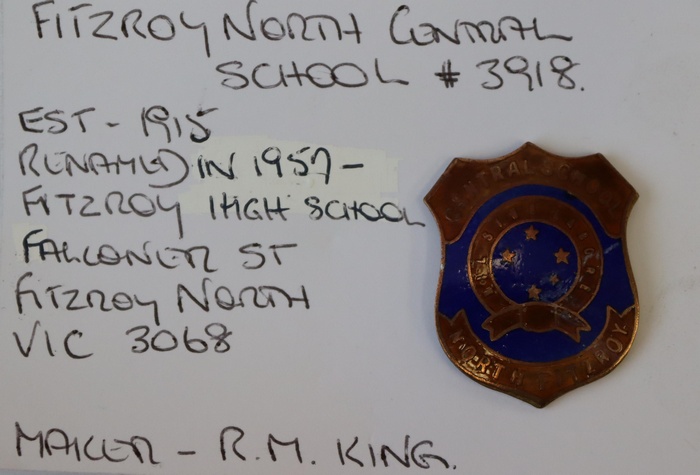 FITZROY NORTH CENTRAL
SCHOOL # 3918.
EST - 1915
RENAMED IN 1957 -
FITZROY HIGH SCHOOL
FALCONER ST
FITZROY NORTH
VIC 3068
MAKER - R.M. KING.
CENTRAL SCHOOL
NORTH FITZROY